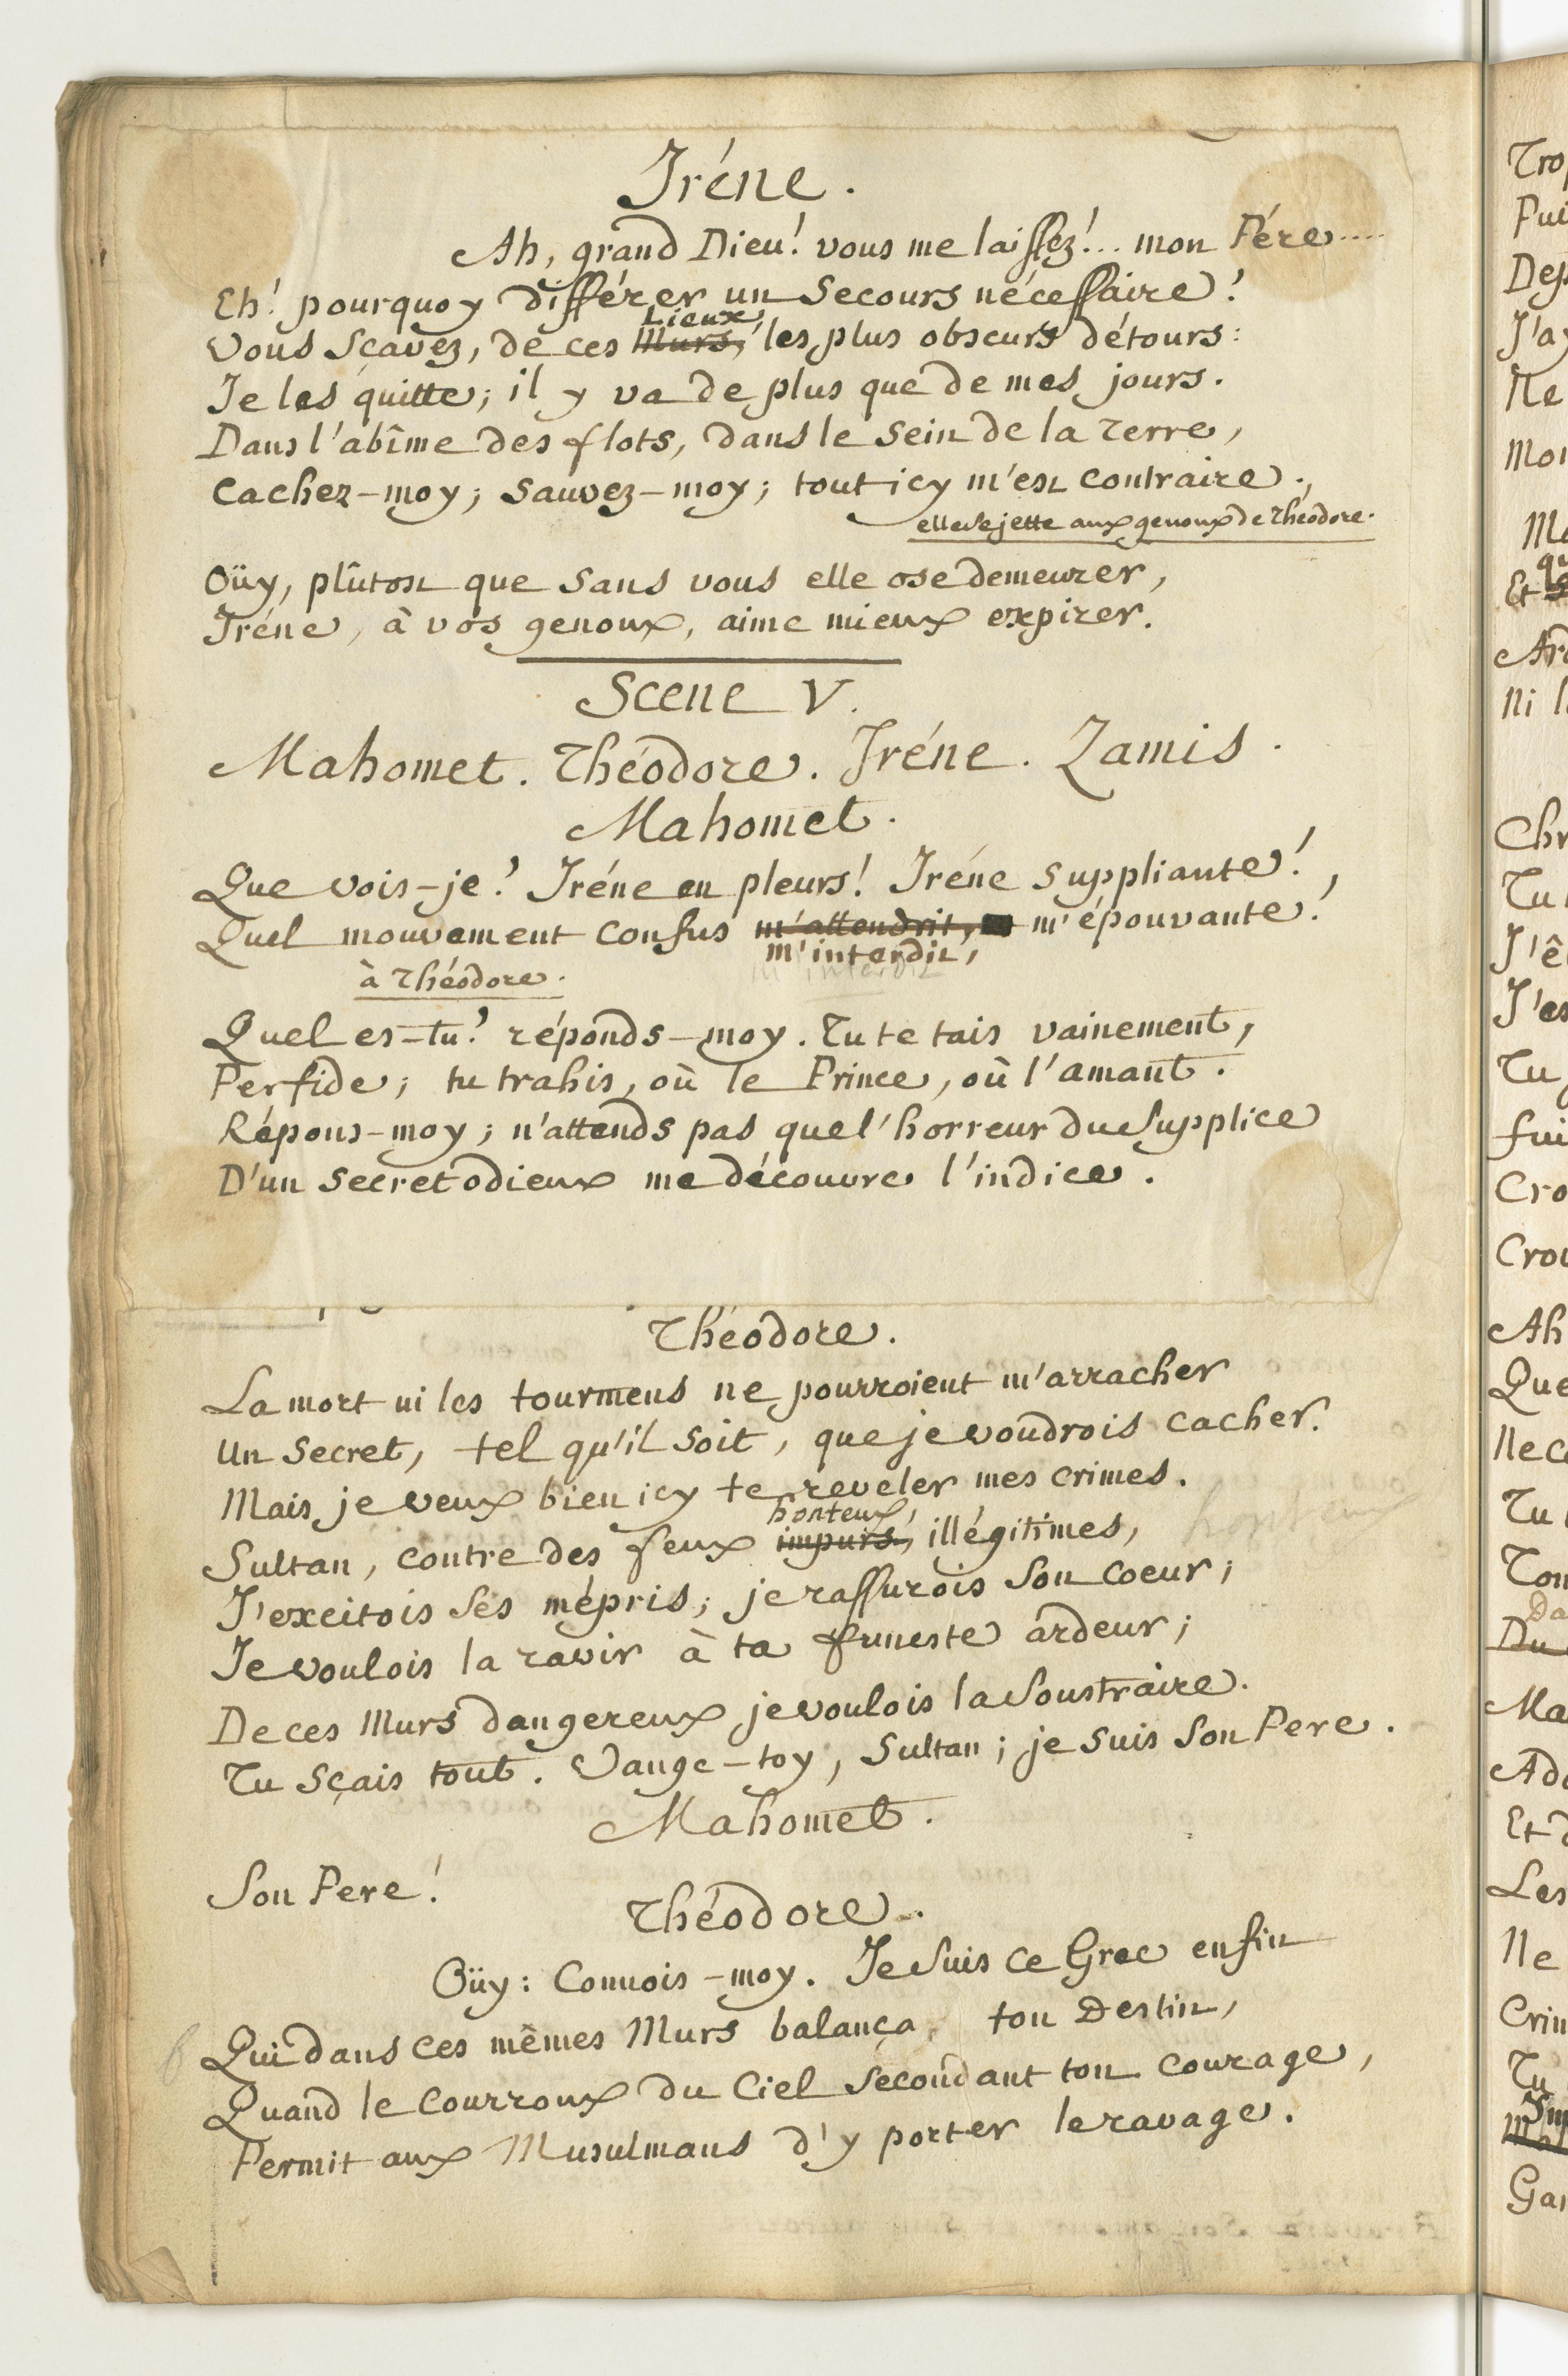 Iréne.
Ah, grand Dieu! vous me laissez!... mon Pére.....
Eh! pourquoy différer un Secours nécessaire?
Lieux,
Vous Sçavez, de ces Murs, les plus obscurs détours:
Je les quitte; il y va de plus que de mes jours.
Dans l'abîme des flots, dans le Sein de la Terre,
Cachez-moy; Sauvez-moy; tout icy m'est Contraire.
elle se jette aux genoux de Théodore.
Oüy, plûtost que Sans vous elle ose demeurer,
Iréne, à vos genoux, aime mieux expirer.
Scene V.
Mahomet. Théodore. Iréne. Zamis.
Mahomet.
Que vois-je? Iréne en pleurs! Iréne Suppliante!
Quel mouvement Confus m'attendrit, m'épouvante?
m'interdit,
à Théodore.
Quel es-tu? réponds-moy. Tu te tais vainement,
Perfide; tu trahis, où le Prince, où l'amant.
Répons-moy; n'attends pas que l'horreur du Supplice
D'un Secret odieux me découvre l'indice.
Théodore.
La mort ni les tourmens ne pourroient m'arracher
Un Secret, tel qu'il Soit, que je voudrois cacher.
Mais je veux bien icy te réveler mes crimes.
honteux,
Sultan, contre des feux impurs, illégitimes,
honteux
J'excitois Ses mépris; je rassurois Son Coeur;
Je voulois la ravir à ta funeste ardeur;
De ces Murs dangereux je voulois la Soustraire.
Tu Sçais tout. Vange-toy, Sultan; je Suis Son Pere.
Mahomet.
Son Pere!
Théodore.
Oüy: Connois-moy. Je Suis Ce Grec enfin
Qui dans ces mêmes Murs balança, ton Destin,
Quand le Courroux du Ciel Sécondant ton Courage,
Permit aux Musulmans d'y porter le ravage.